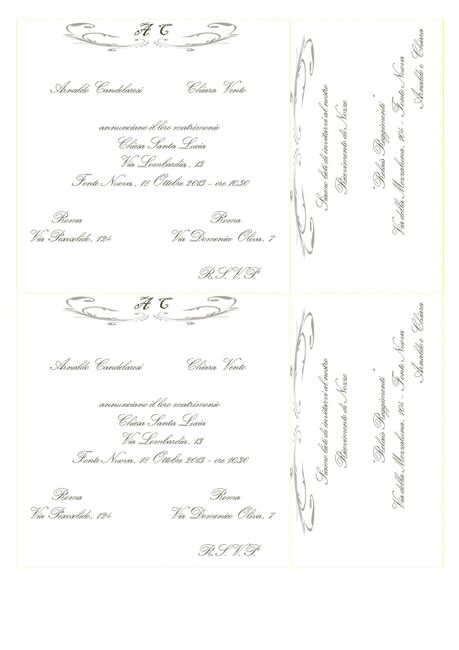 A C
Arnaldo Candelaresi Chiara Vento
annunciano il loro matrimonio
Chiesa Santa Lucia
Via Lombardia, 13
Fonte Nuova, 18 Ottobre 2013 - ore 10.30
Roma Roma
Via Domenico Oliva, 7
R.S.V.P.
Siamo lieti di invitarvi al nostro
Ricevimento di Nozze
"Relais Reggimenti"
Via della Mezzaluna, 104 - Fonte Nuova
Arnaldo e Chiara
A C
Arnaldo Candelaresi Chiara Vento
annunciano il loro matrimonio
Chiesa Santa Lucia
Via Lombardia, 13
Fonte Nuova, 18 Ottobre 2013 - ore 10.30
Roma Roma
Via Domenico Oliva, 7
R.S.V.P.
Siamo lieti di invitarvi al nostro
Ricevimento di Nozze
"Relais Reggimenti"
Via della Mezzaluna, 104 - Fonte Nuova
Arnaldo e Chiara